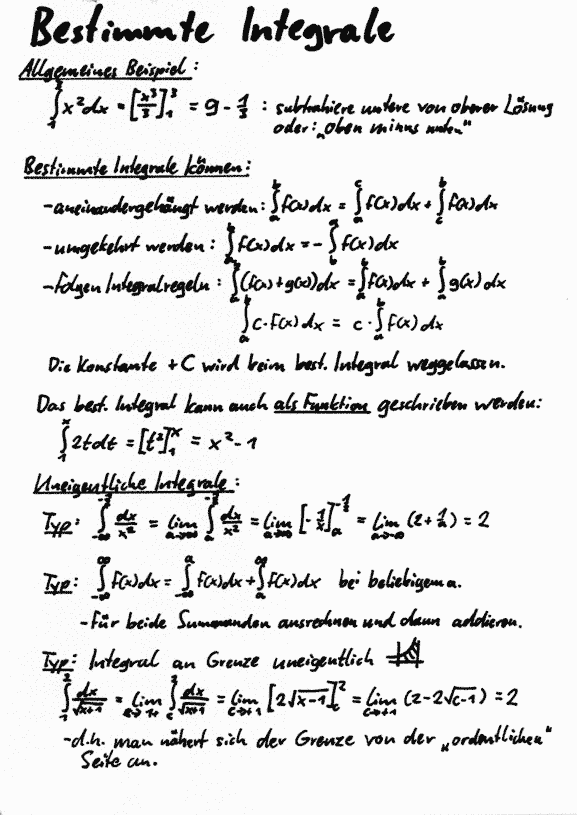 Bestimmte Integrale
Allgemeines Beispiel:
∫₁³ x² dx = [x³/3]₁³ = 9 - 1/3 : subtrahiere untere von oberer Lösung
oder: „oben minus unten"
Bestimmte Integrale können:
-aneinandergehängt werden: ∫ₐᵇ f(x)dx = ∫ₐᶜ f(x)dx + ∫꜀ᵇ f(x)dx
-umgekehrt werden: ∫ₐᵇ f(x)dx = - ∫ᵇₐ f(x)dx
-folgen Integralregeln: ∫ₐᵇ (f(x)+g(x))dx = ∫ₐᵇ f(x)dx + ∫ₐᵇ g(x) dx
∫ₐᵇ c·f(x) dx = c·∫ₐᵇ f(x) dx
Die Konstante +C wird beim best. Integral weggelassen.
Das best. Integral kann auch als Funktion geschrieben werden:
∫₁ˣ 2t dt = [t²]₁ˣ = x² - 1
Uneigentliche Integrale:
Typ: ∫ dx/x² = lim ∫ dx/x² = lim [-1/x] = lim (2 + 1/a) = 2
Typ: ∫ f(x)dx = ∫ f(x)dx + ∫ f(x)dx bei beliebigem a.
-Für beide Summanden ausrechnen und dann addieren.
Typ: Integral an Grenze uneigentlich
∫₁² dx/ = lim ∫ dx/ = lim [2√x-1] = lim (2-2√c-1) = 2
-d.h. man nähert sich der Grenze von der „ordentlichen"
Seite an.